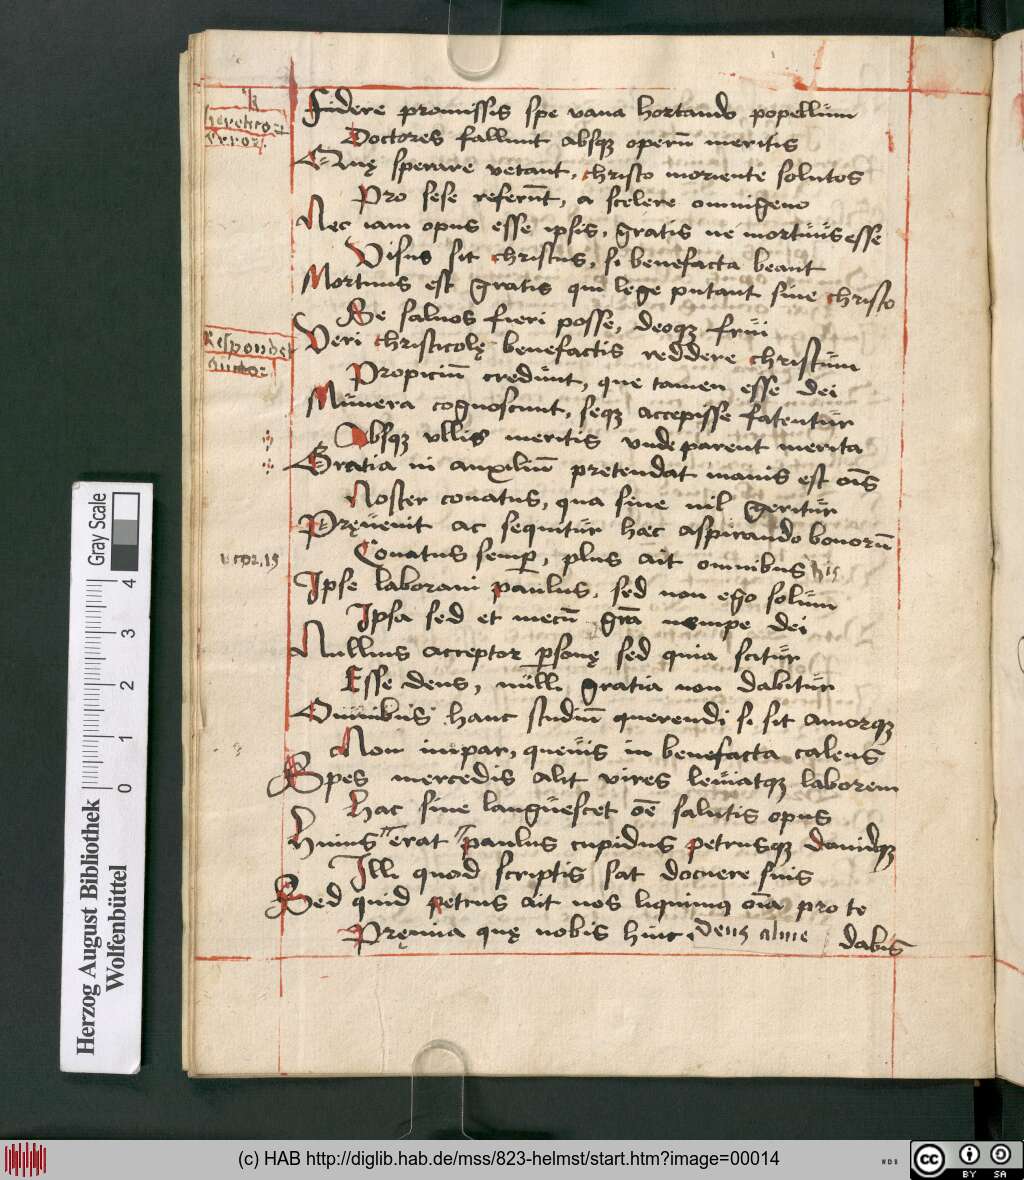 hereticoꝝ
error
Fidere promissis spe vana hortando popellum
Doctores fallunt absqꝫ operū meritis
Quę sperare vetant, christo moriente solutos
Pro sese referūt, a scelere omnigeno
Nec iam opus esse ipsis, gratis ne mortuus esse
Visus sit christus, si benefacta beant
Mortuus est gratis qui lege putant sine christo
Se saluos fieri posse, deoqꝫ frui
Respondet
autor
Veri christicolę benefactis reddere christum
Propiciū credunt, que tamen esse dei
Munera cognoscunt, seqꝫ accepisse fatentur
Absqꝫ vllis meritis vnde parent merita
Gratia in auxiliū pretendat manis est oīs
Noster conatus, qua sine nil geritur
Pręuenit ac sequitur hæc aspirando bonorū
Conatus semꝑ, plus ait omnibus his
1 cor. 15
Ipse laboraui paulus, sed non ego solum
Ipsa sed et mecū grā nempe dei
Nullius acceptor ꝑsonę sed quia scitur
Esse deus, nulli gratia non dabitur
Omnibus hanc studiū querendi si sit amorqꝫ
Non impar, queuis in benefacta calens
Spes mercedis alit vires leuiatqꝫ laborem
Hac sine languescet oē salutis opus
Huius erat paulus cupidus petrusqꝫ dauidqꝫ
Illi quod scriptis sat docuere suis
Sed quid petrus ait nos liquimꝰ oīa pro te
Pręmia quę nobis hinc, Deus alme dabis
Herzog August Bibliothek
Wolfenbüttel
0 1 2 3 4
Gray Scale
(c) HAB http://diglib.hab.de/mss/823-helmst/start.htm?image=00014
WDB
cc
BY SA